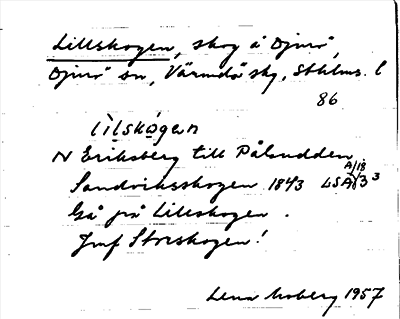 Lillskogen, skog å Djurö,
Djurö sn, Värmdö skg, Sthlms. l
86
lilskogen
N Eriksberg till Pålsudden
Sandviksskogen 1843 LSA
Gå på Lillskogen.
Jmf Storskogen!
Lena Moberg 1957